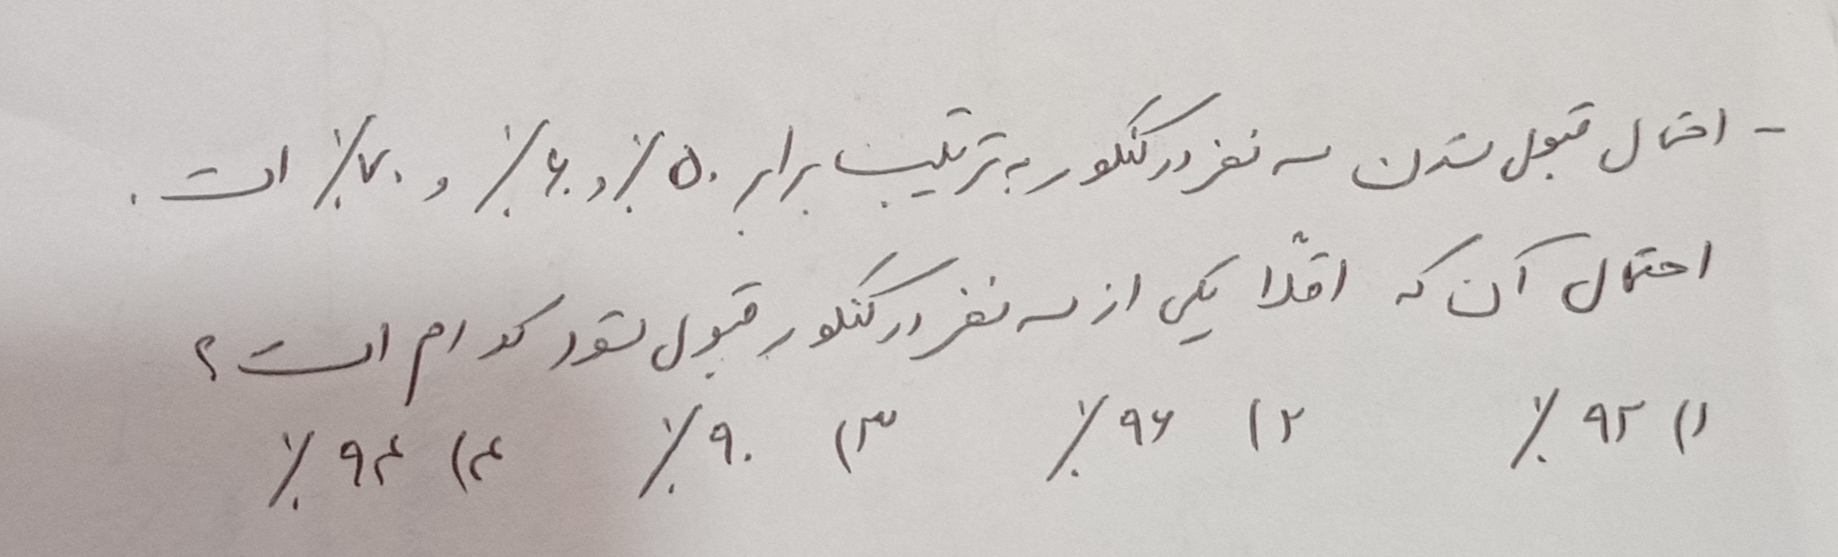 - احتمال قبول شدن سه نفر در کنکور به ترتیب برابر ۵۰٪ و ۶۰٪ و ۷۰٪ است.
احتمال آن که اقلاً یکی از سه نفر در کنکور قبول شود کدام است؟
۱) ۹۲٪ ۲) ۹۶٪ ۳) ۹۰٪ ۴) ۹۴٪